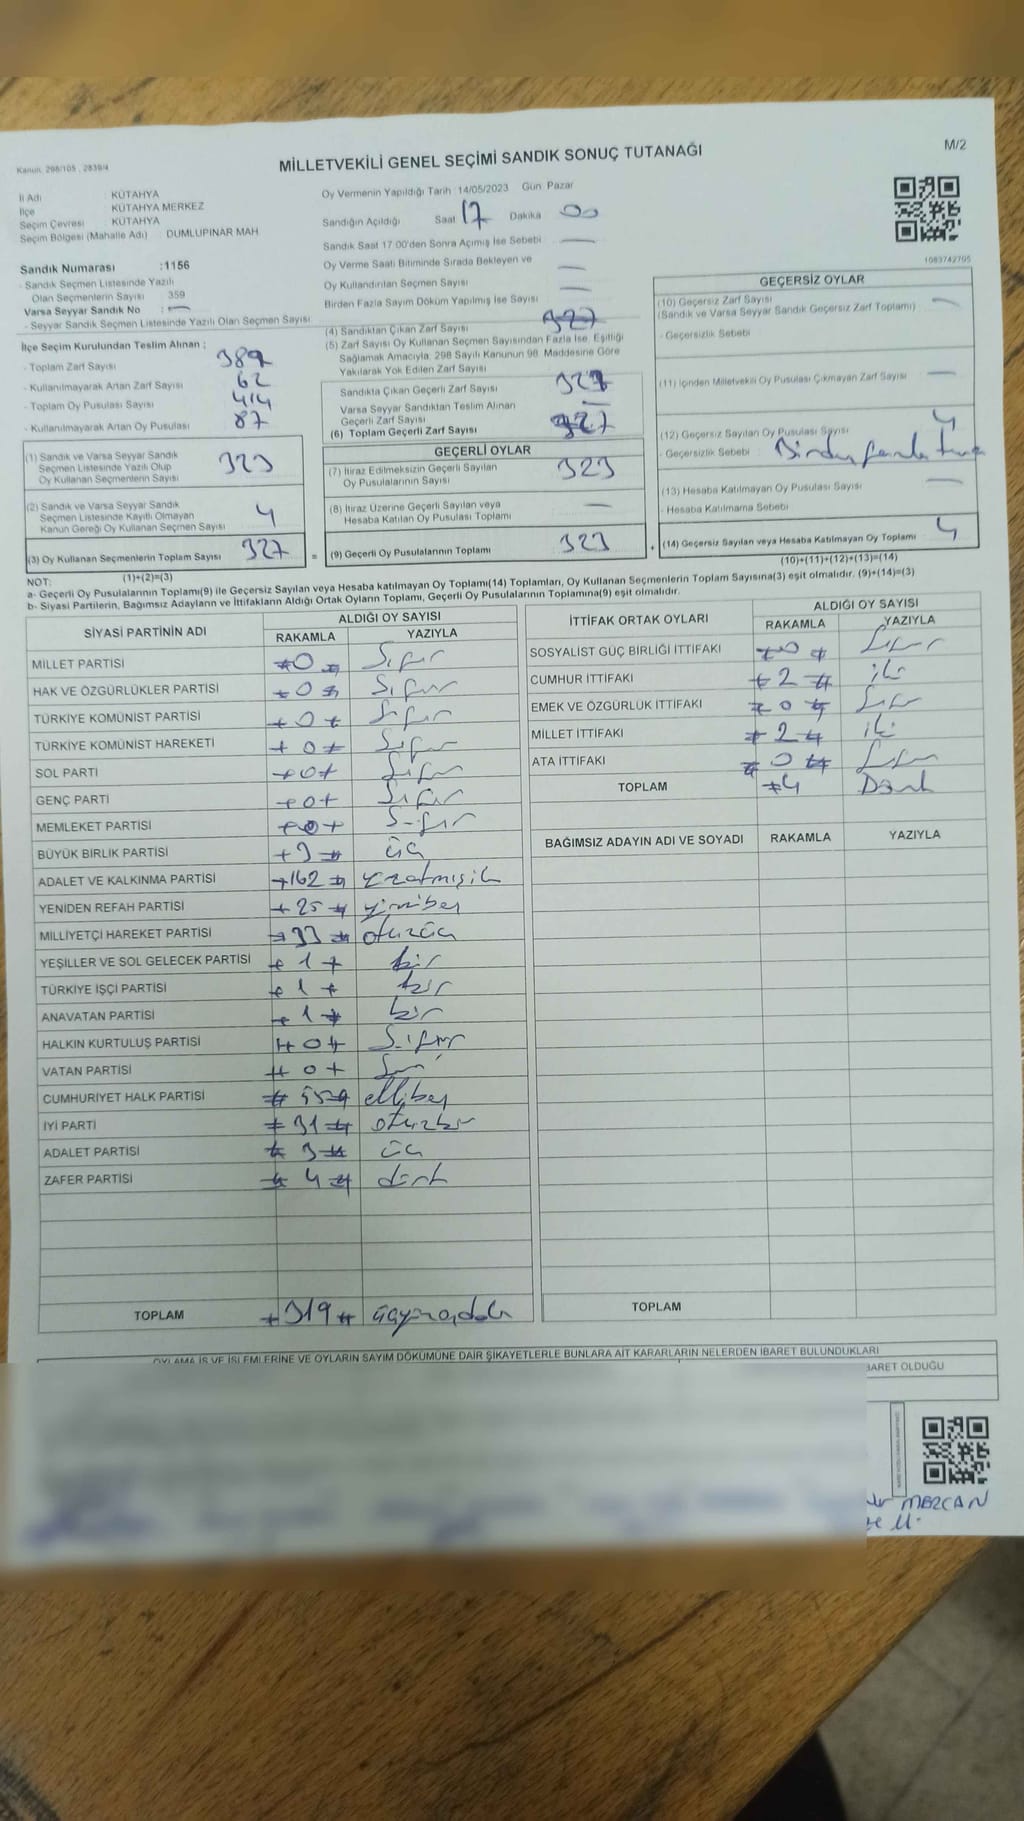 Kanun, 298/105 , 2839/4
MİLLETVEKİLİ GENEL SEÇİMİ SANDIK SONUÇ TUTANAĞI
M/2
İl Adı : KÜTAHYA
İlçe : KÜTAHYA MERKEZ
Seçim Çevresi : KÜTAHYA
Seçim Bölgesi (Mahalle Adı) : DUMLUPINAR MAH
Sandık Numarası :1156
- Sandık Seçmen Listesinde Yazılı
Olan Seçmenlerin Sayısı : 359
Varsa Seyyar Sandık No : —
- Seyyar Sandık Seçmen Listesinde Yazılı Olan Seçmen Sayısı
İlçe Seçim Kurulundan Teslim Alınan ;
- Toplam Zarf Sayısı 389
- Kullanılmayarak Artan Zarf Sayısı 62
- Toplam Oy Pusulası Sayısı 414
- Kullanılmayarak Artan Oy Pusulası 87
(1) Sandık ve Varsa Seyyar Sandık
Seçmen Listesinde Yazılı Olup
Oy Kullanan Seçmenlerin Sayısı 323
(2) Sandık ve Varsa Seyyar Sandık
Seçmen Listesinde Kayıtlı Olmayan
Kanun Gereği Oy Kullanan Seçmen Sayısı 4
(3) Oy Kullanan Seçmenlerin Toplam Sayısı 327 =
(1)+(2)=(3)
Oy Vermenin Yapıldığı Tarih 14/05/2023 Gün Pazar
Sandığın Açıldığı Saat 17 Dakika 00
Sandık Saat 17.00'den Sonra Açılmış İse Sebebi —
Oy Verme Saati Bitiminde Sırada Bekleyen ve
Oy Kullandırılan Seçmen Sayısı —
Birden Fazla Sayım Döküm Yapılmış İse Sayısı —
(4) Sandıktan Çıkan Zarf Sayısı 327
(5) Zarf Sayısı Oy Kullanan Seçmen Sayısından Fazla İse, Eşitliği
Sağlamak Amacıyla, 298 Sayılı Kanunun 98. Maddesine Göre
Yakılarak Yok Edilen Zarf Sayısı
Sandıkta Çıkan Geçerli Zarf Sayısı 327
Varsa Seyyar Sandıktan Teslim Alınan
Geçerli Zarf Sayısı —
(6) Toplam Geçerli Zarf Sayısı 327
GEÇERLİ OYLAR
(7) İtiraz Edilmeksizin Geçerli Sayılan
Oy Pusulalarının Sayısı 323
(8) İtiraz Üzerine Geçerli Sayılan veya
Hesaba Katılan Oy Pusulası Toplamı —
(9) Geçerli Oy Pusulalarının Toplamı 323 +
1083742705
GEÇERSİZ OYLAR
(10) Geçersiz Zarf Sayısı —
(Sandık ve Varsa Seyyar Sandık Geçersiz Zarf Toplamı)
- Geçersizlik Sebebi
(11) İçinden Milletvekili Oy Pusulası Çıkmayan Zarf Sayısı —
(12) Geçersiz Sayılan Oy Pusulası Sayısı 4
- Geçersizlik Sebebi : Birden fazla tercih
(13) Hesaba Katılmayan Oy Pusulası Sayısı —
- Hesaba Katılmama Sebebi
(14) Geçersiz Sayılan veya Hesaba Katılmayan Oy Toplamı 4
(10)+(11)+(12)+(13)=(14)
NOT:
a- Geçerli Oy Pusulalarının Toplamı(9) ile Geçersiz Sayılan veya Hesaba katılmayan Oy Toplamı(14) Toplamları, Oy Kullanan Seçmenlerin Toplam Sayısına(3) eşit olmalıdır. (9)+(14)=(3)
b- Siyasi Partilerin, Bağımsız Adayların ve İttifakların Aldığı Ortak Oyların Toplamı, Geçerli Oy Pusulalarının Toplamına(9) eşit olmalıdır.
SİYASİ PARTİNİN ADI ALDIĞI OY SAYISI
RAKAMLA YAZIYLA
MİLLET PARTİSİ 0 Sıfır
HAK VE ÖZGÜRLÜKLER PARTİSİ 0 Sıfır
TÜRKİYE KOMÜNİST PARTİSİ 0 Sıfır
TÜRKİYE KOMÜNİST HAREKETİ 0 Sıfır
SOL PARTİ 0 Sıfır
GENÇ PARTİ 0 Sıfır
MEMLEKET PARTİSİ 0 Sıfır
BÜYÜK BİRLİK PARTİSİ 3 üç
ADALET VE KALKINMA PARTİSİ 162 yüzatmışiki
YENİDEN REFAH PARTİSİ 25 yirmibeş
MİLLİYETÇİ HAREKET PARTİSİ 33 otuzüç
YEŞİLLER VE SOL GELECEK PARTİSİ 1 bir
TÜRKİYE İŞÇİ PARTİSİ 1 bir
ANAVATAN PARTİSİ 1 bir
HALKIN KURTULUŞ PARTİSİ 0 Sıfır
VATAN PARTİSİ 0 Sıfır
CUMHURİYET HALK PARTİSİ 55 ellibeş
İYİ PARTİ 31 otuzbir
ADALET PARTİSİ 3 üç
ZAFER PARTİSİ 4 dört
TOPLAM 319 üçyüzondokuz
İTTİFAK ORTAK OYLARI ALDIĞI OY SAYISI
RAKAMLA YAZIYLA
SOSYALİST GÜÇ BİRLİĞİ İTTİFAKI 0 Sıfır
CUMHUR İTTİFAKI 2 iki
EMEK VE ÖZGÜRLÜK İTTİFAKI 0 Sıfır
MİLLET İTTİFAKI 2 iki
ATA İTTİFAKI 0 Sıfır
TOPLAM 4 Dört
BAĞIMSIZ ADAYIN ADI VE SOYADI RAKAMLA YAZIYLA
TOPLAM
OYLAMA İŞ VE İŞLEMLERİNE VE OYLARIN SAYIM DÖKÜMÜNE DAİR ŞİKAYETLERLE BUNLARA AİT KARARLARIN NELERDEN İBARET BULUNDUKLARI
BARET OLDUĞU
MERCAN